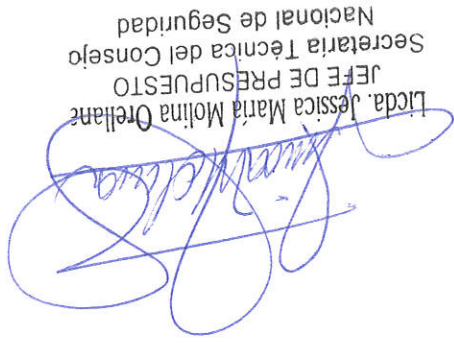 Licda. Jessica María Molina Orellana
JEFE DE PRESUPUESTO
Secretaría Técnica del Consejo
Nacional de Seguridad